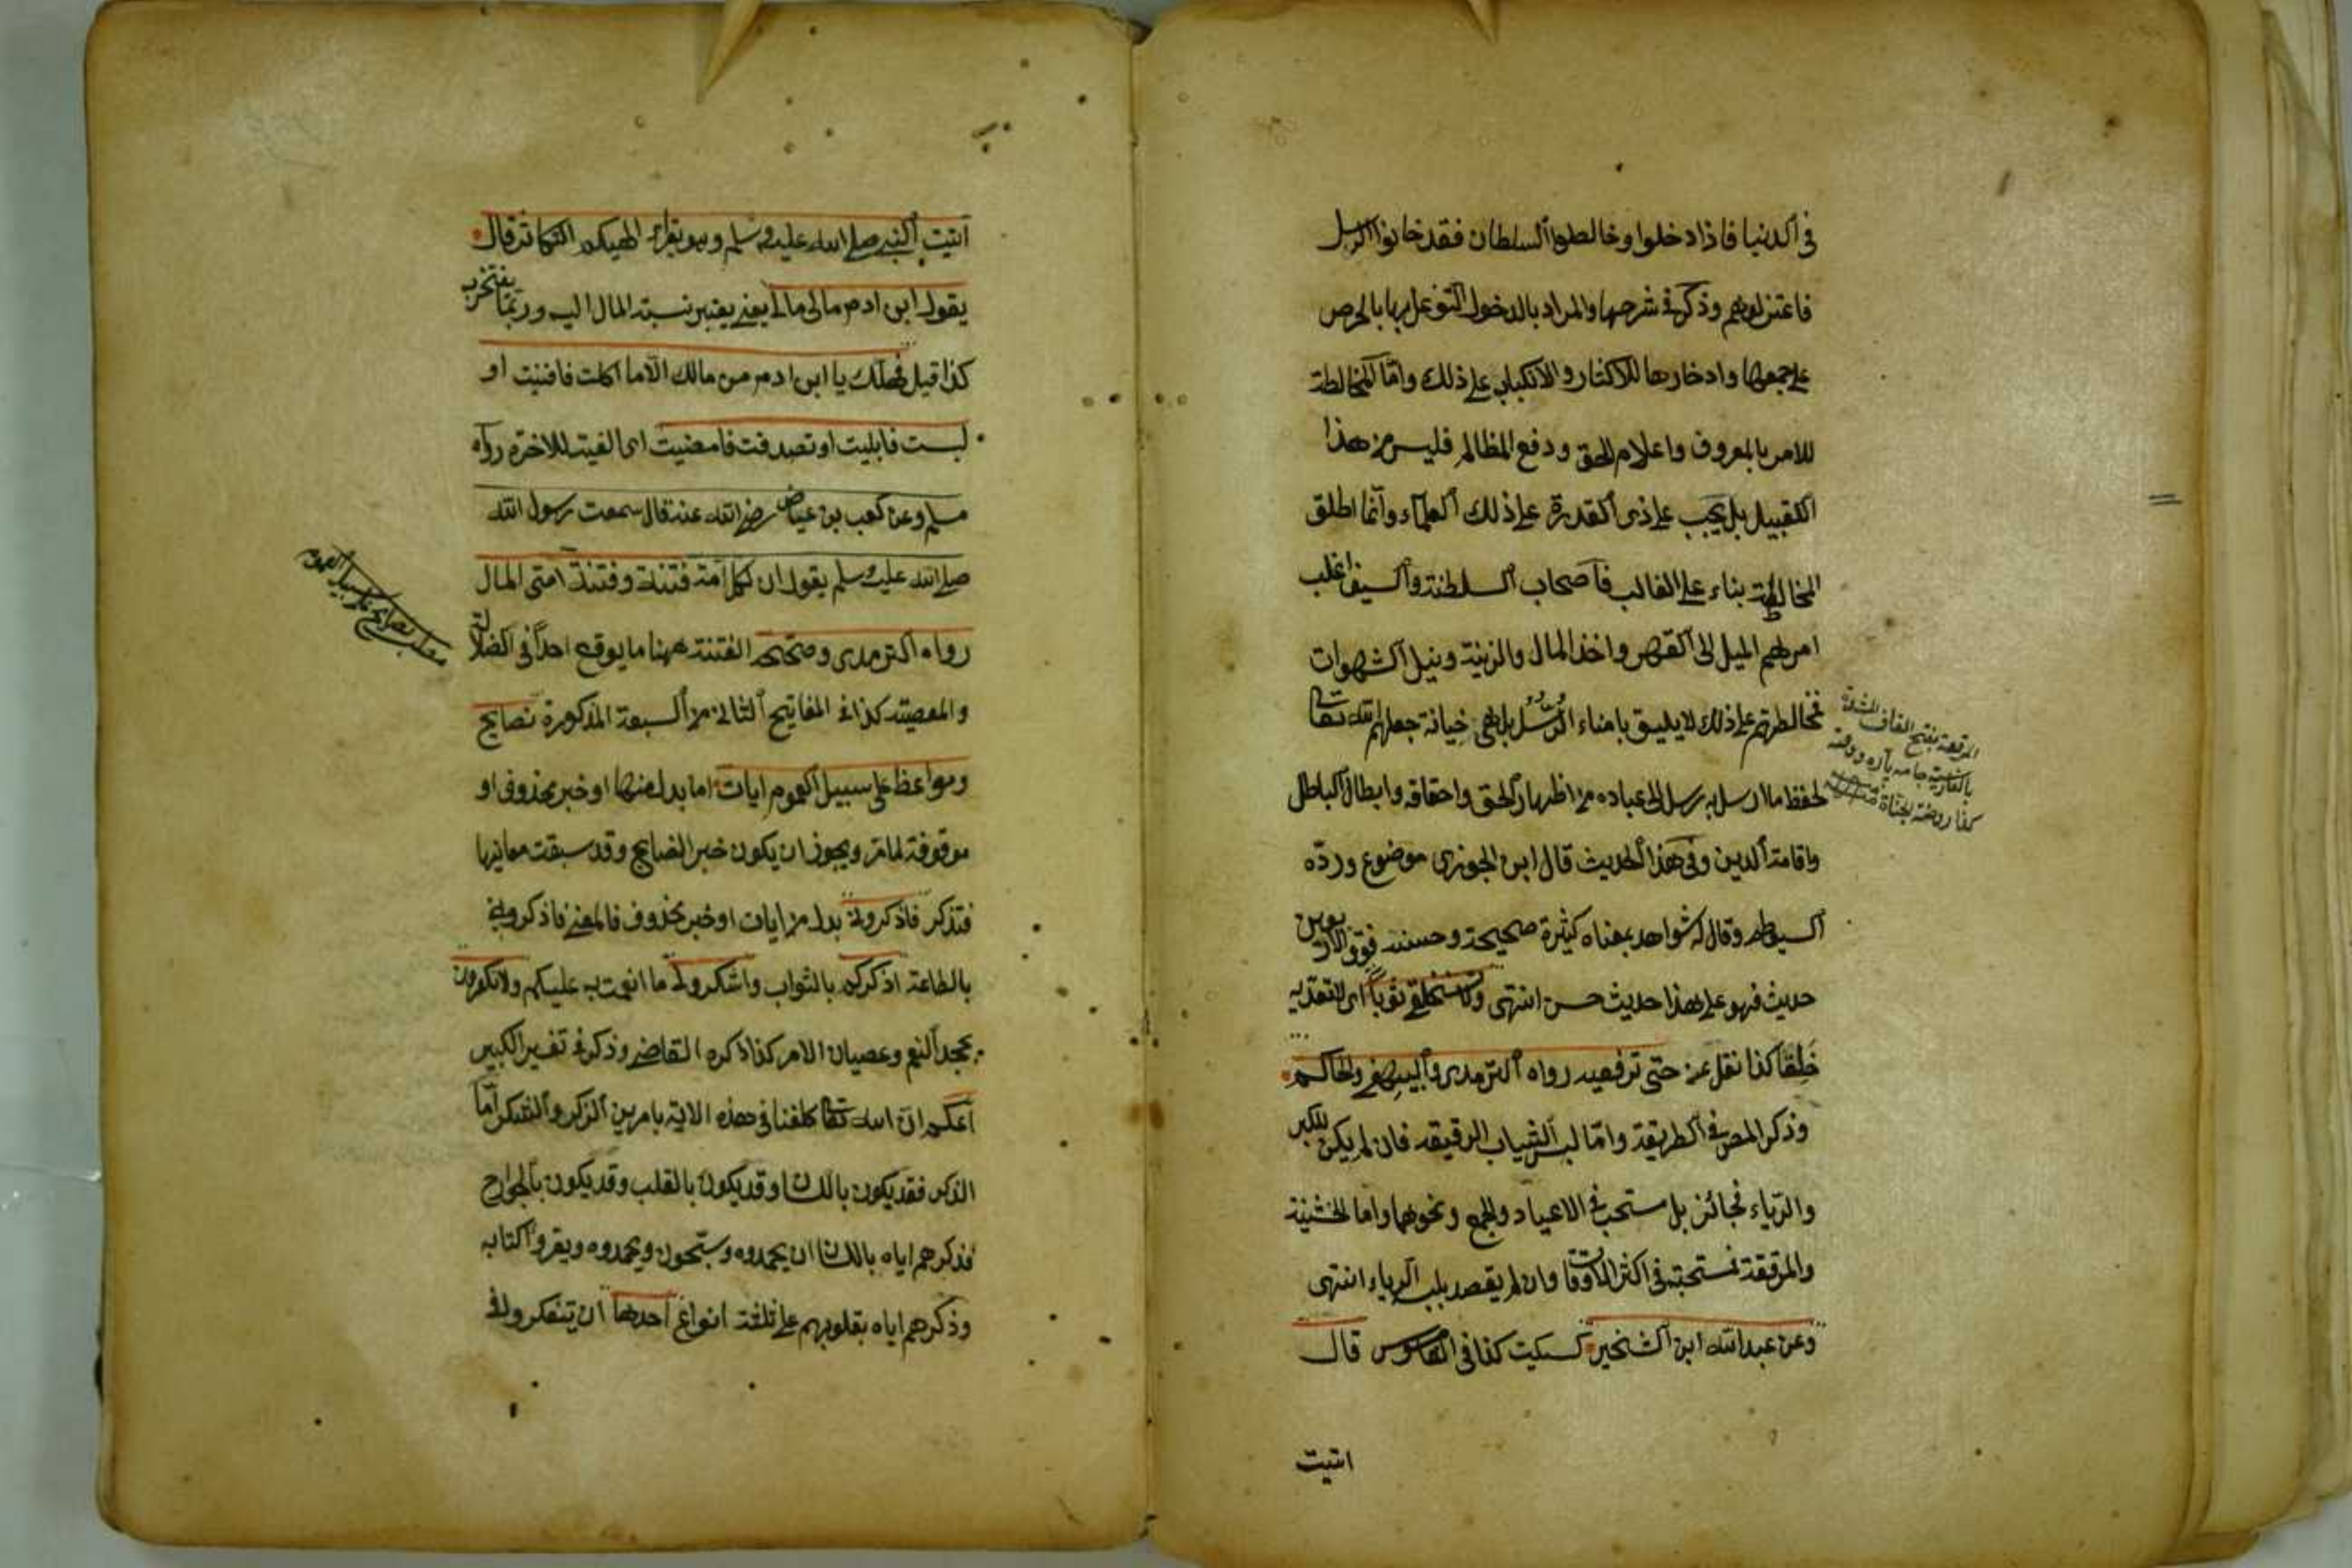 في الدنيا فاذا دخلوا وخالطوا السلطان فقد خانوا الرسل
فاعتزلوهم وذكر في شرحها والمراد بالدخول التوغل بها بالحرص
على جمعها وادخارها للاكثار والانكباب على ذلك واما المخالطة
للامر بالمعروف واعلام الحق ودفع المظالم فليس من هذا
القبيل بل يجب على ذي القدرة على ذلك العلماء وانما اطلق
المخالطة بناء على الغالب فاصحاب السلطنة والسيف اغلب
امرهم الميل الى القهر واخذ المال والزينة ونيل الشهوات
فمخالطتهم على ذلك لا يليق بامناء الرسل بل هي خيانة جعلهم الله تعالى
لحفظ ما ارسل به رسل الى عباده من اظهار الحق واحقاقه وابطال الباطل
واقامة الدين وفي هذا الحديث قال ابن الجوزى موضوع ورده
السيوطي وقال له شواهد بمعناه كثيرة صحيحة وحسنة فوق الاربعين
حديث فهو على هذا حديث حسن انتهى ولا تستخلقي ثوباً اى لا تعديه
خَلِقًا كذا نقل عن حتى ترقعيه رواه الترمدى والبيهقي والحاكم
وذكر المص في الطريقة واما لبس الثياب الرقيقه فان لم يكن للكبر
والرياء فجائز بل مستحب في الاعياد والجمع ونحوهما واما الخشنة
والمرقعة فمستحبة في اكثر الاوقات وان لم يقصد بلبسه الرياء انتهى
وعن عبد الله ابن الشخير كسكيت كذا في القاموس قال
اتيت
المرقعة بفتح القاف المشددة
بالفارسية جامه پاره دوخته
اتيت النبي صلى الله عليه وسلم وهو يقراء الهيكم التكاثر قال
يقول ابن ادم مالى مالى يعني يعتبر نسبة المال اليه وربما يفتخر به
كذا قيل فهل لك يا ابن ادم من مالك الّا ما اكلت فافنيت او
لبست فابليت او تصدقت فامضيت اى القيته للاخرة رواه
مسلم وعن كعب بن عياض رضي الله عنه قال سمعت رسول الله
صلى الله عليه وسلم يقول ان لكل امة فتنة وفتنة امتى المال
رواه الترمدى وصححه الفتنة ههنا ما يوقع احداً في الضلالة
والمعصية كذا في المفاتيح الثاني من السبعة المذكورة نصايح
ومواعظ على سبيل العموم ايات اما بدل منها او خبر محذوف او
موقوفة لما مر ويجوز ان يكون خبر النصايح وقد سبقت معانيها
فتذكر فاذكروني بدل من ايات او خبر محذوف فالمعنى فاذكروني
بالطاعة اذكركم بالثواب واشكروا لي ما انعمت به عليكم ولا تكفرون
بجحد النعم وعصيان الامر كذا ذكره القاضي وذكر في تفسير الكبير
اعلم ان الله تعالى كلفنا في هذه الاية بامرين الذكر والشكر امّا
الذكر فقد يكون باللسان وقد يكون بالقلب وقد يكون بالجوارح
فذكرهم اياه باللسان ان يحمدوه وسبّحون ويمجدوه ويقروا كتابه
وذكرهم اياه بقلوبهم على ثلثة انواع احدها ان يتفكروا في